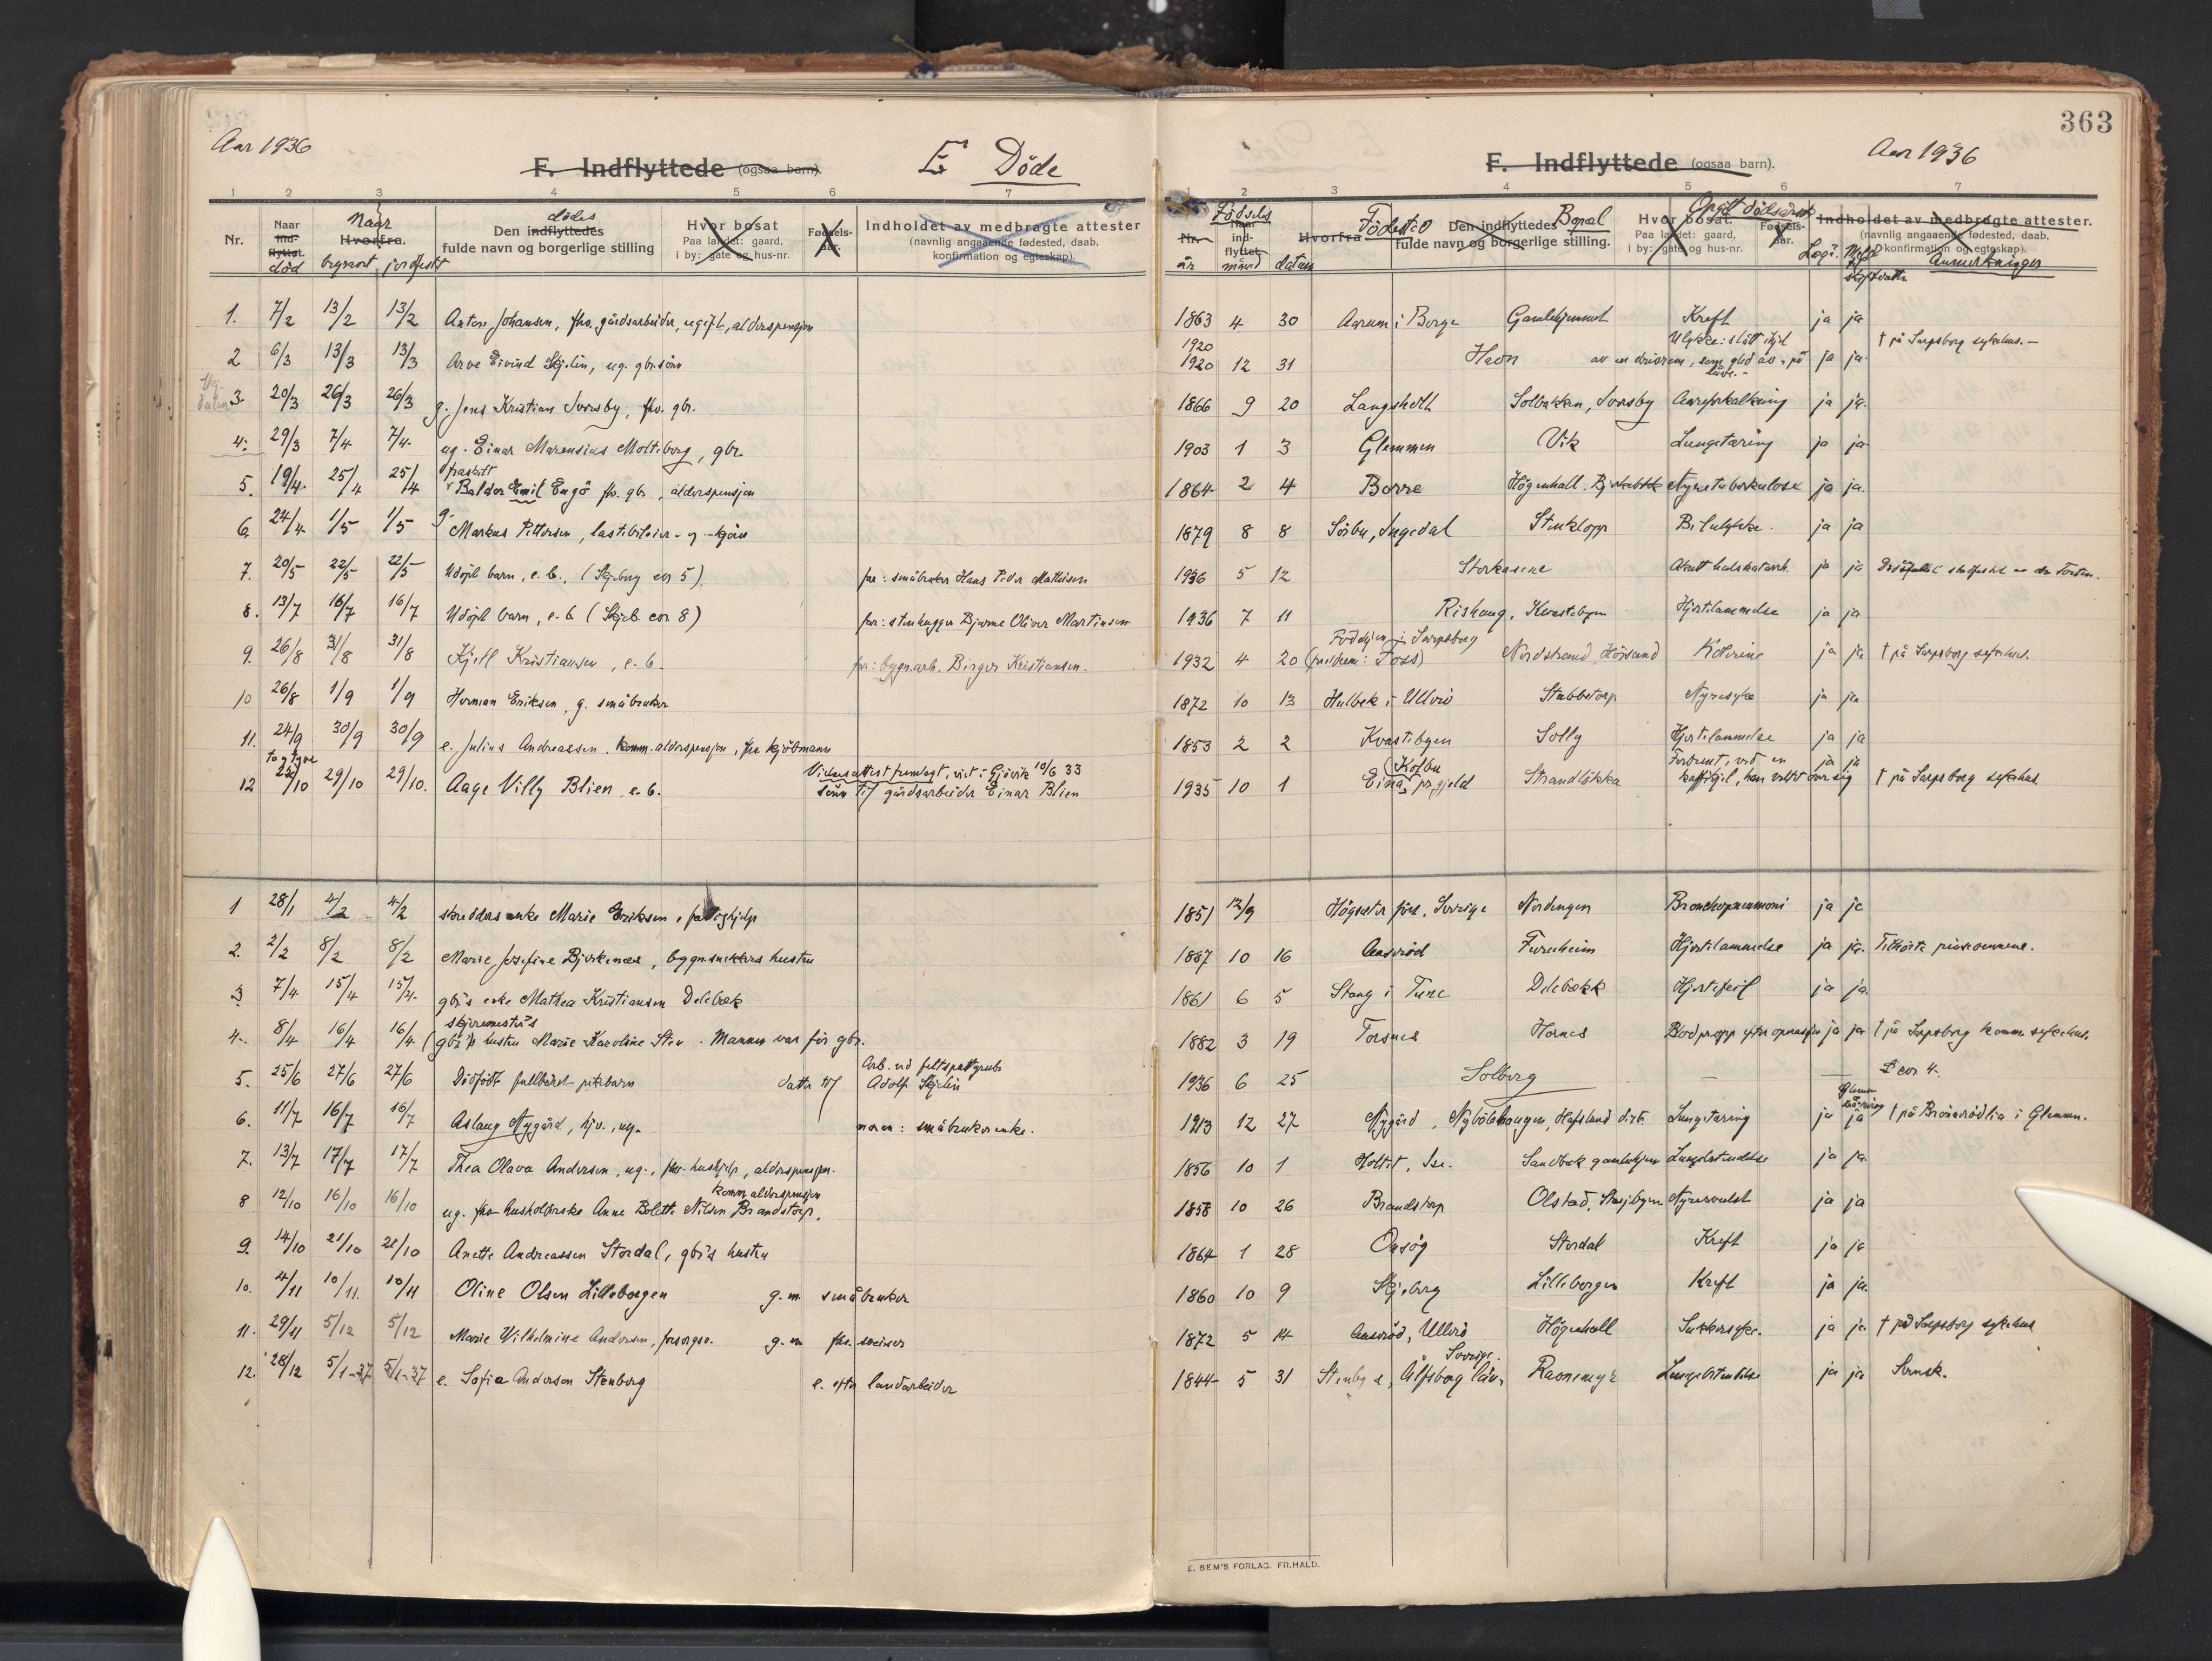 363
Aar 1936
F. Indflyttede (ogsaa barn).
E. Döde
1 2 3 4 5 6 7
Nr.
Naar ind-flyttet. död
Naar Hvorfra. begravet jordfestet
dödes
Den indflyttedes
fulde navn og borgerlige stilling
Hvor bosat
Paa landet: gaard,
i by: gate og hus-nr.
Fødsels-
aar.
Indholdet av medbragte attester
(navnlig angaaende fødested, daab,
konfirmation og egteskap).
1. 7/2 13/2 13/2 Anton Johansen, fhv. gårdsarbeider, ugift, alderspensjon
2 6/3 13/3 13/3 Arve Eivind Skjelin, ug. gbr.sönn
3. 20/3 26/3 26/3 g. Jens Kristian Ivarsby, fhv. gbr.
4. 29/3 7/4 7/4 ug. Einar Marensius Moltiberg, gbr.
fraskilt
5. 19/4 25/4 25/4 Baldor Emil Engö fhv. gbr, alderspensjon
6. 24/4 1/5 1/5 g. Markus Pettersen, lastebileier- og -kjörer
7. 20/5 22/5 22/5 Udöpt barn, e.b., (Skjeberg 5) far: småbruker Hans Peder Mathisen
8. 13/7 16/7 16/7 Udöpt barn, e.b. (Skjeb. 8) far: stenhugger Bjarne Oliver Martinsen
9. 26/8 31/8 31/8 Kjell Kristiansen, e.b. far: bygn.arb. Birger Kristiansen.
10 26/8 1/9 1/9 Herman Eriksen, g. småbruker
11. 24/9 30/9 30/9 e. Julius Andreassen, komm. alderspensjon, fhv kjöbmann
to og tyve
12 22/10 29/10 29/10. Aage Villy Blien, e.b. Vielsesattest fremlagt, viet i Gjövik 10/6 33
sönn til gårdsarbeider Einar Blien
1 28/1 4/2 4/2 skredders enke Marie Eriksen, fattighjelp
2. 2/2 8/2 8/2 Marie Josefine Bjerkenæs, bygn.snekkers hustru
3 7/4 15/4 15/4. gbr's enke Mathea Kristiansen Delebæk
4. 8/4 16/4 16/4. (gbr's hustru Marie Karoline Sten. Mannen var för gbr.
5. 25/6 27/6 27/6 Dödfödt fullbåret pikebarn datter til Adolf Skjelin
Arb. ved feltspatgrube
6. 11/7 16/7 16/7 Aslaug Nygård, hjv., ug. moren: småbrukerenke.
7. 13/7 17/7 17/7 Thea Olava Andersen, ug., fhv. hushjelp, alderspensjon.
komm alderspensjon
8 12/10 16/10 16/10 ug. fhv husholderske Anne Bolette Nilsen Brandstorp.
9. 14/10 21/10 21/10 Anette Andreassen Stordal, gbr's hustru
10. 4/11 10/11. 10/11 Oline Olsen Lilleborgen g. m. småbruker
11. 29/11 5/12 5/12 Marie Wilhelmine Andersen, forsorgso. g. m fhv.
12. 28/12 5/1-37 5/1-37 e. Sofia Anderson Stenberg e. efter landarbeider
F. Indflyttede (ogsaa barn).
Aar 1936
1 2 3 4 5 6 7
Födsels
Nr. år
Naar ind-flyttet. måned datum
Hvorfra Födested
Den indflyttedes Bopæl
fulde navn og borgerlige stilling.
Hvor bosat.
Paa landet: gaard,
i by: gate og hus-nr.
Opgit dödsårsak
Fødsels-
aar.
Indholdet av medbragte attester.
(navnlig angaaende fødested, daab,
konfirmation og egteskap).
Anmerkninger
1863 4 30 Aarum i Borge Gamlehjemmet Kreft ja ja
1920 Ulykke: slått ihjel † på Sarpsborg sykehus.-
1920 12 31 Havn av en drivrem, som gled av, på ja ja.
låve.-
1866 9 20 Langsholt Solbakken, Ivarsby Aareforkalkning ja ja.
1903 1 3 Glemmen Vik Lungetæring ja ja
1864 2 4 Borre Högenhall. Nyretuberkulose ja ja.
1879 8 8 Sörbu, Ingedal Stenklopp Bilulykke. ja ja
1936 5 12 Storkasene Akutt halskatarrh. ja ja
1936 7 11 Rishaug, Kvastebyen Hjertelammelse ja ja
Födehjem i Sarpsborg
1932 4 20 (preshem: Foss) Nordstrand Höysand Kolerine ja ja † på Sarpsborg sykehus.
1872 10 13 Hulbek i Ullerö Stubbetorp Nyresyke ja ja
1853 2 2 Kvastebyen Solly Hjertelammelse ja ja
(Kolbu Forbrent, ved en ja ja
1935 10 1 Eina, pr.gjeld Strandlökka kaffekjel, han veltet over sig † på Sarpsborg sykehus.
1851 12/9 Högsæter förs., Sverige Nordengen Bronchopneumoni ja ja
1887 10 16 Aaseröd Furuheim Hjertelammelse ja ja. Tilhörte pinsevennene.
1861 6 5 Stang i Tune Delebekk Hjertefeil ja ja
1882 3 19 Torsnes Hornes Blodpropp efter operasjon ja ja † på Sarpsborg komm. sykehus.
1936 6 25 Solberg — —
1913 12 27 Nygård, Hafslund distr. Lungetæring ja ja † på Brönerödlia i Glemmen.
1856 10 1 Holtet, Sandbæk gamlehjem Lungebetendelse ja ja
1858 10 26 Brandstorp Olstad, Nyresvulst ja ja
1864 1 28 Onsöy Stordal Kreft ja ja
1860 10 9 Skjeberg Lilleborgen Kreft ja ja.
1872 5 14 Aaseröd, Ullerö Högenhall Sukkersyke. ja ja † på Sarpsborg sykehus
Sverige.
1844 5 31 Älfsborg län, Ravnemyr Lungebetendelse ja ja Svensk.
E. SEM'S FORLAG. FR.HALD.